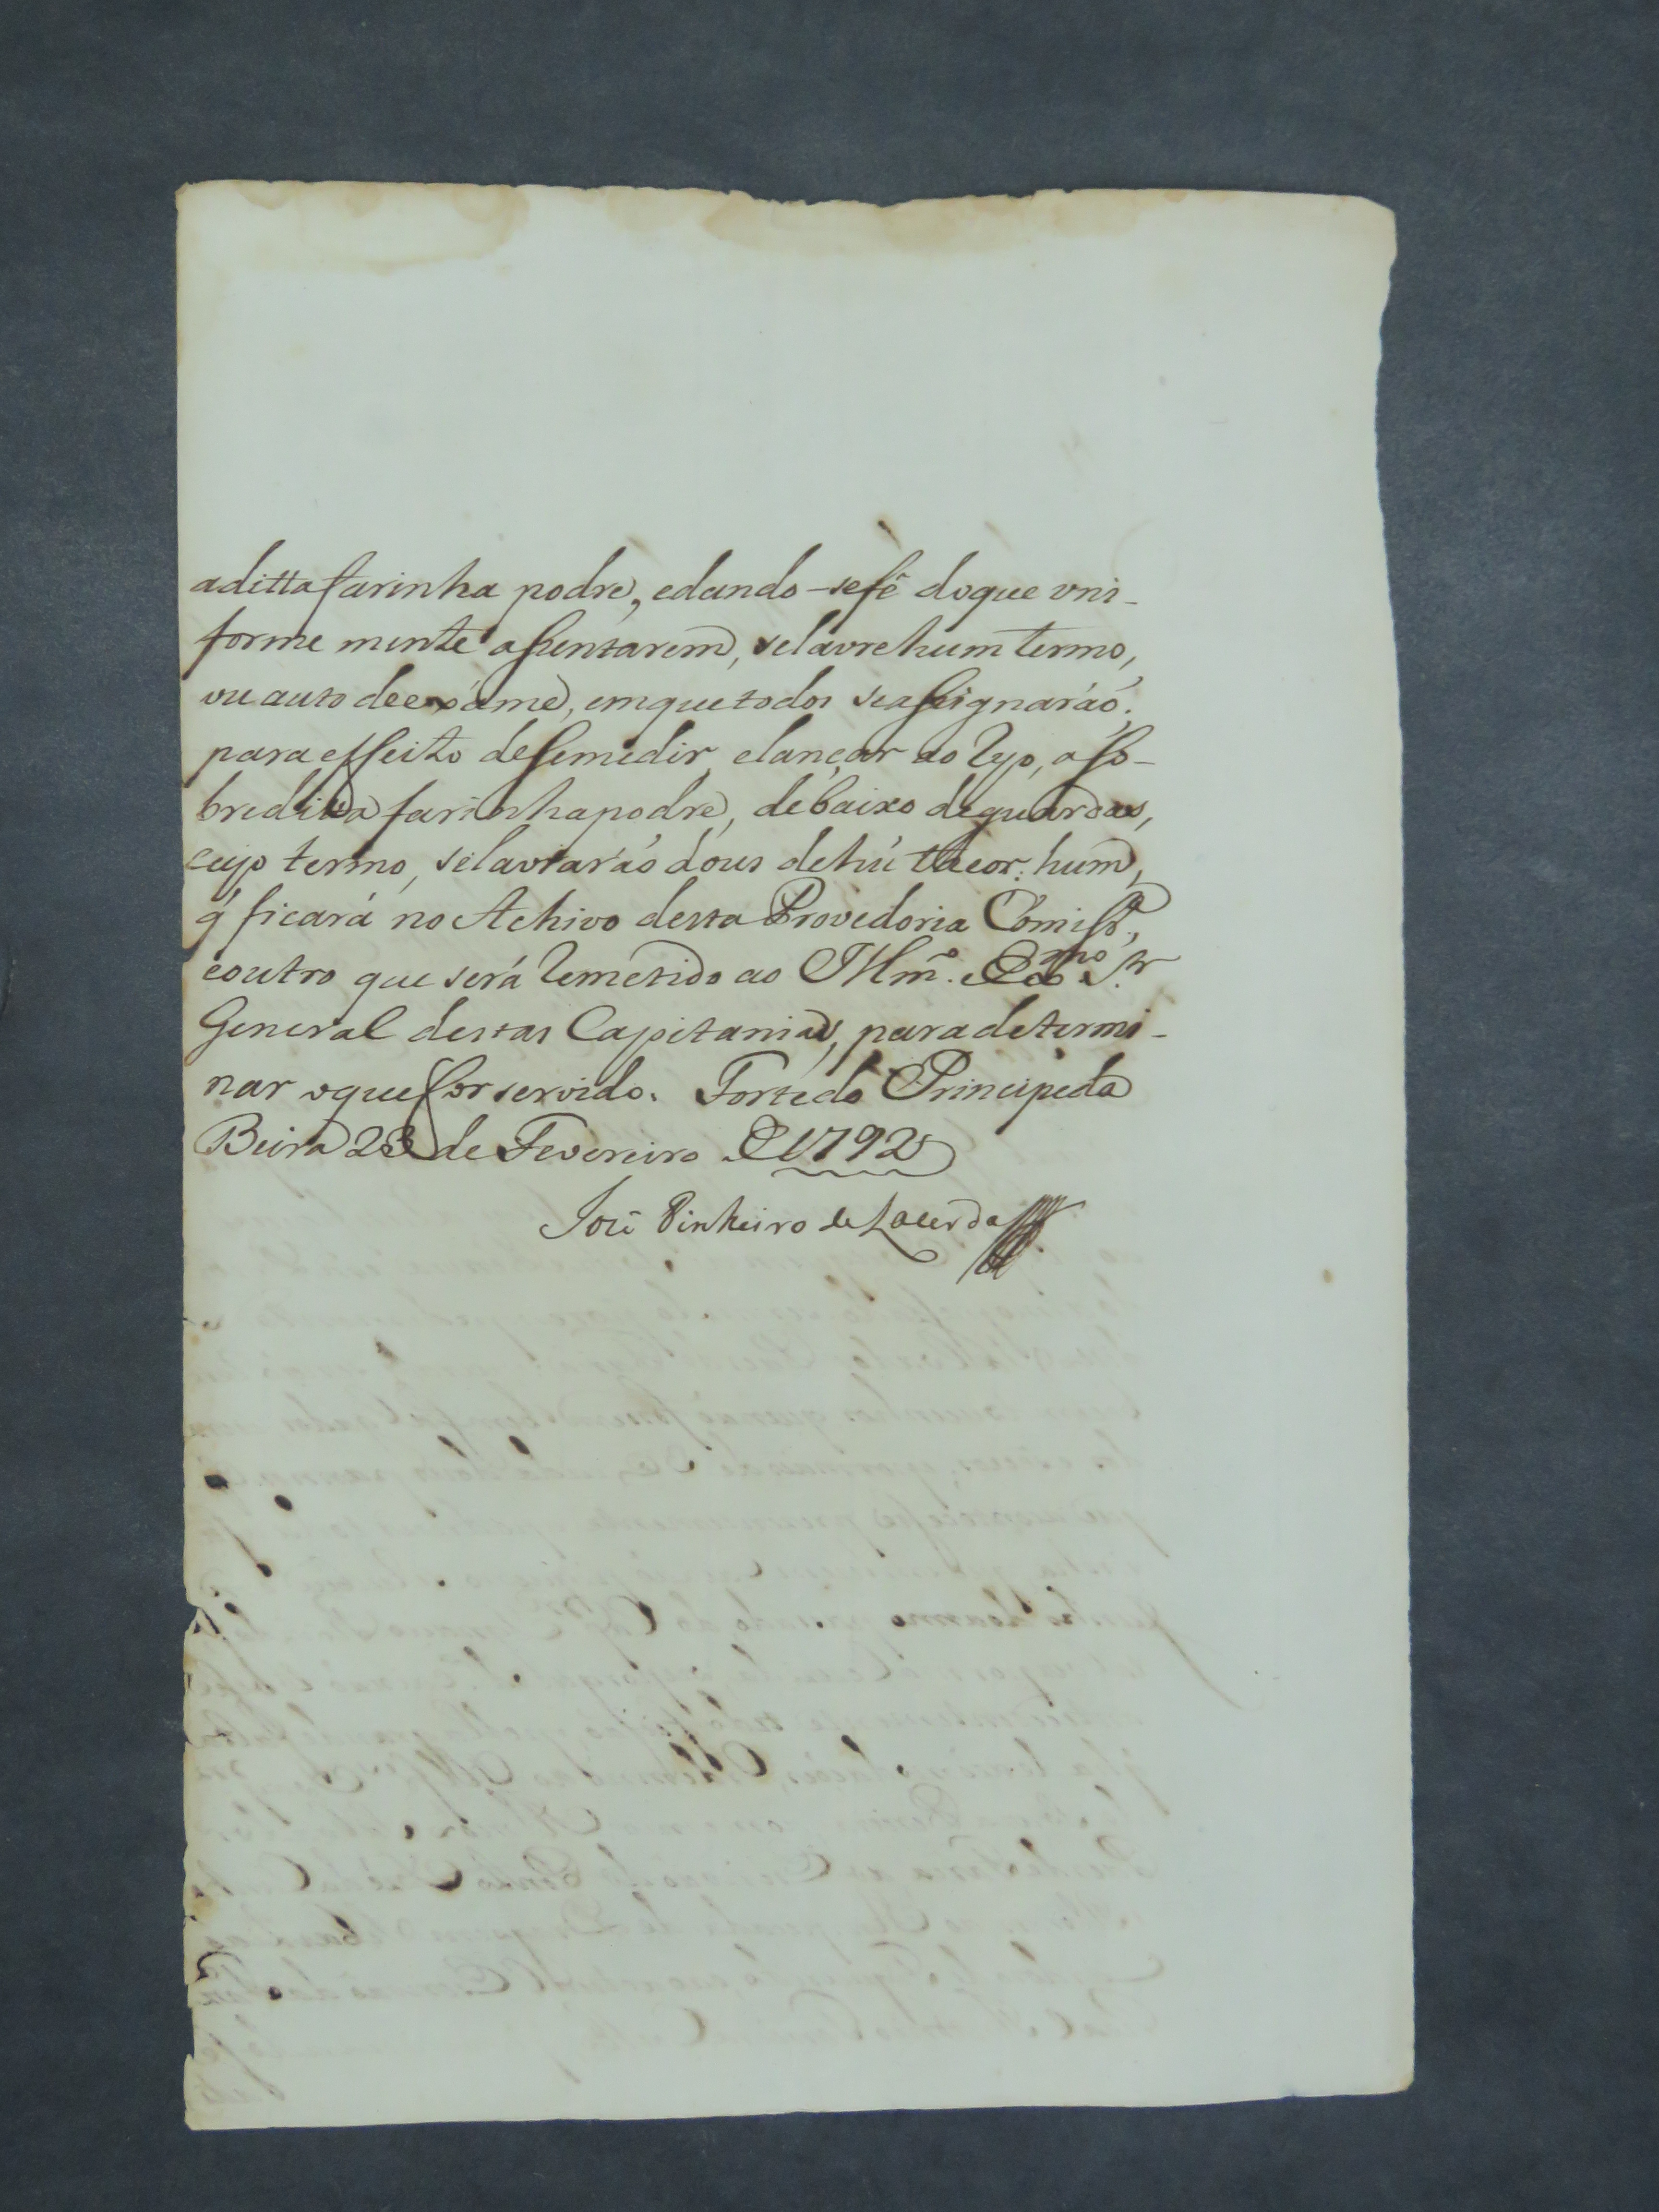 aditta farinha podre, edando-sefê doque vni-
forme mente assentarem, selavre hum termo,
ou auto deexáme, emquetodos seassignaráõ;
para effeito desemedir, elançar ao Ryo, aso-
bredita farinhapodre, debaixo deguardas,
cujo termo, selavraráõ dous dehú theor: hum,
q̃ ficará no Achivo desta Provedoria Comissr.ª,
eoutro que será Remetido ao Illm.º e Exmo Snr
General destas Capitanias, paradetermi-
nar oquefor servido. Fortedo Principeda
Beira 23 de Fevereiro de 1792
José Pinheiro de Lacerda